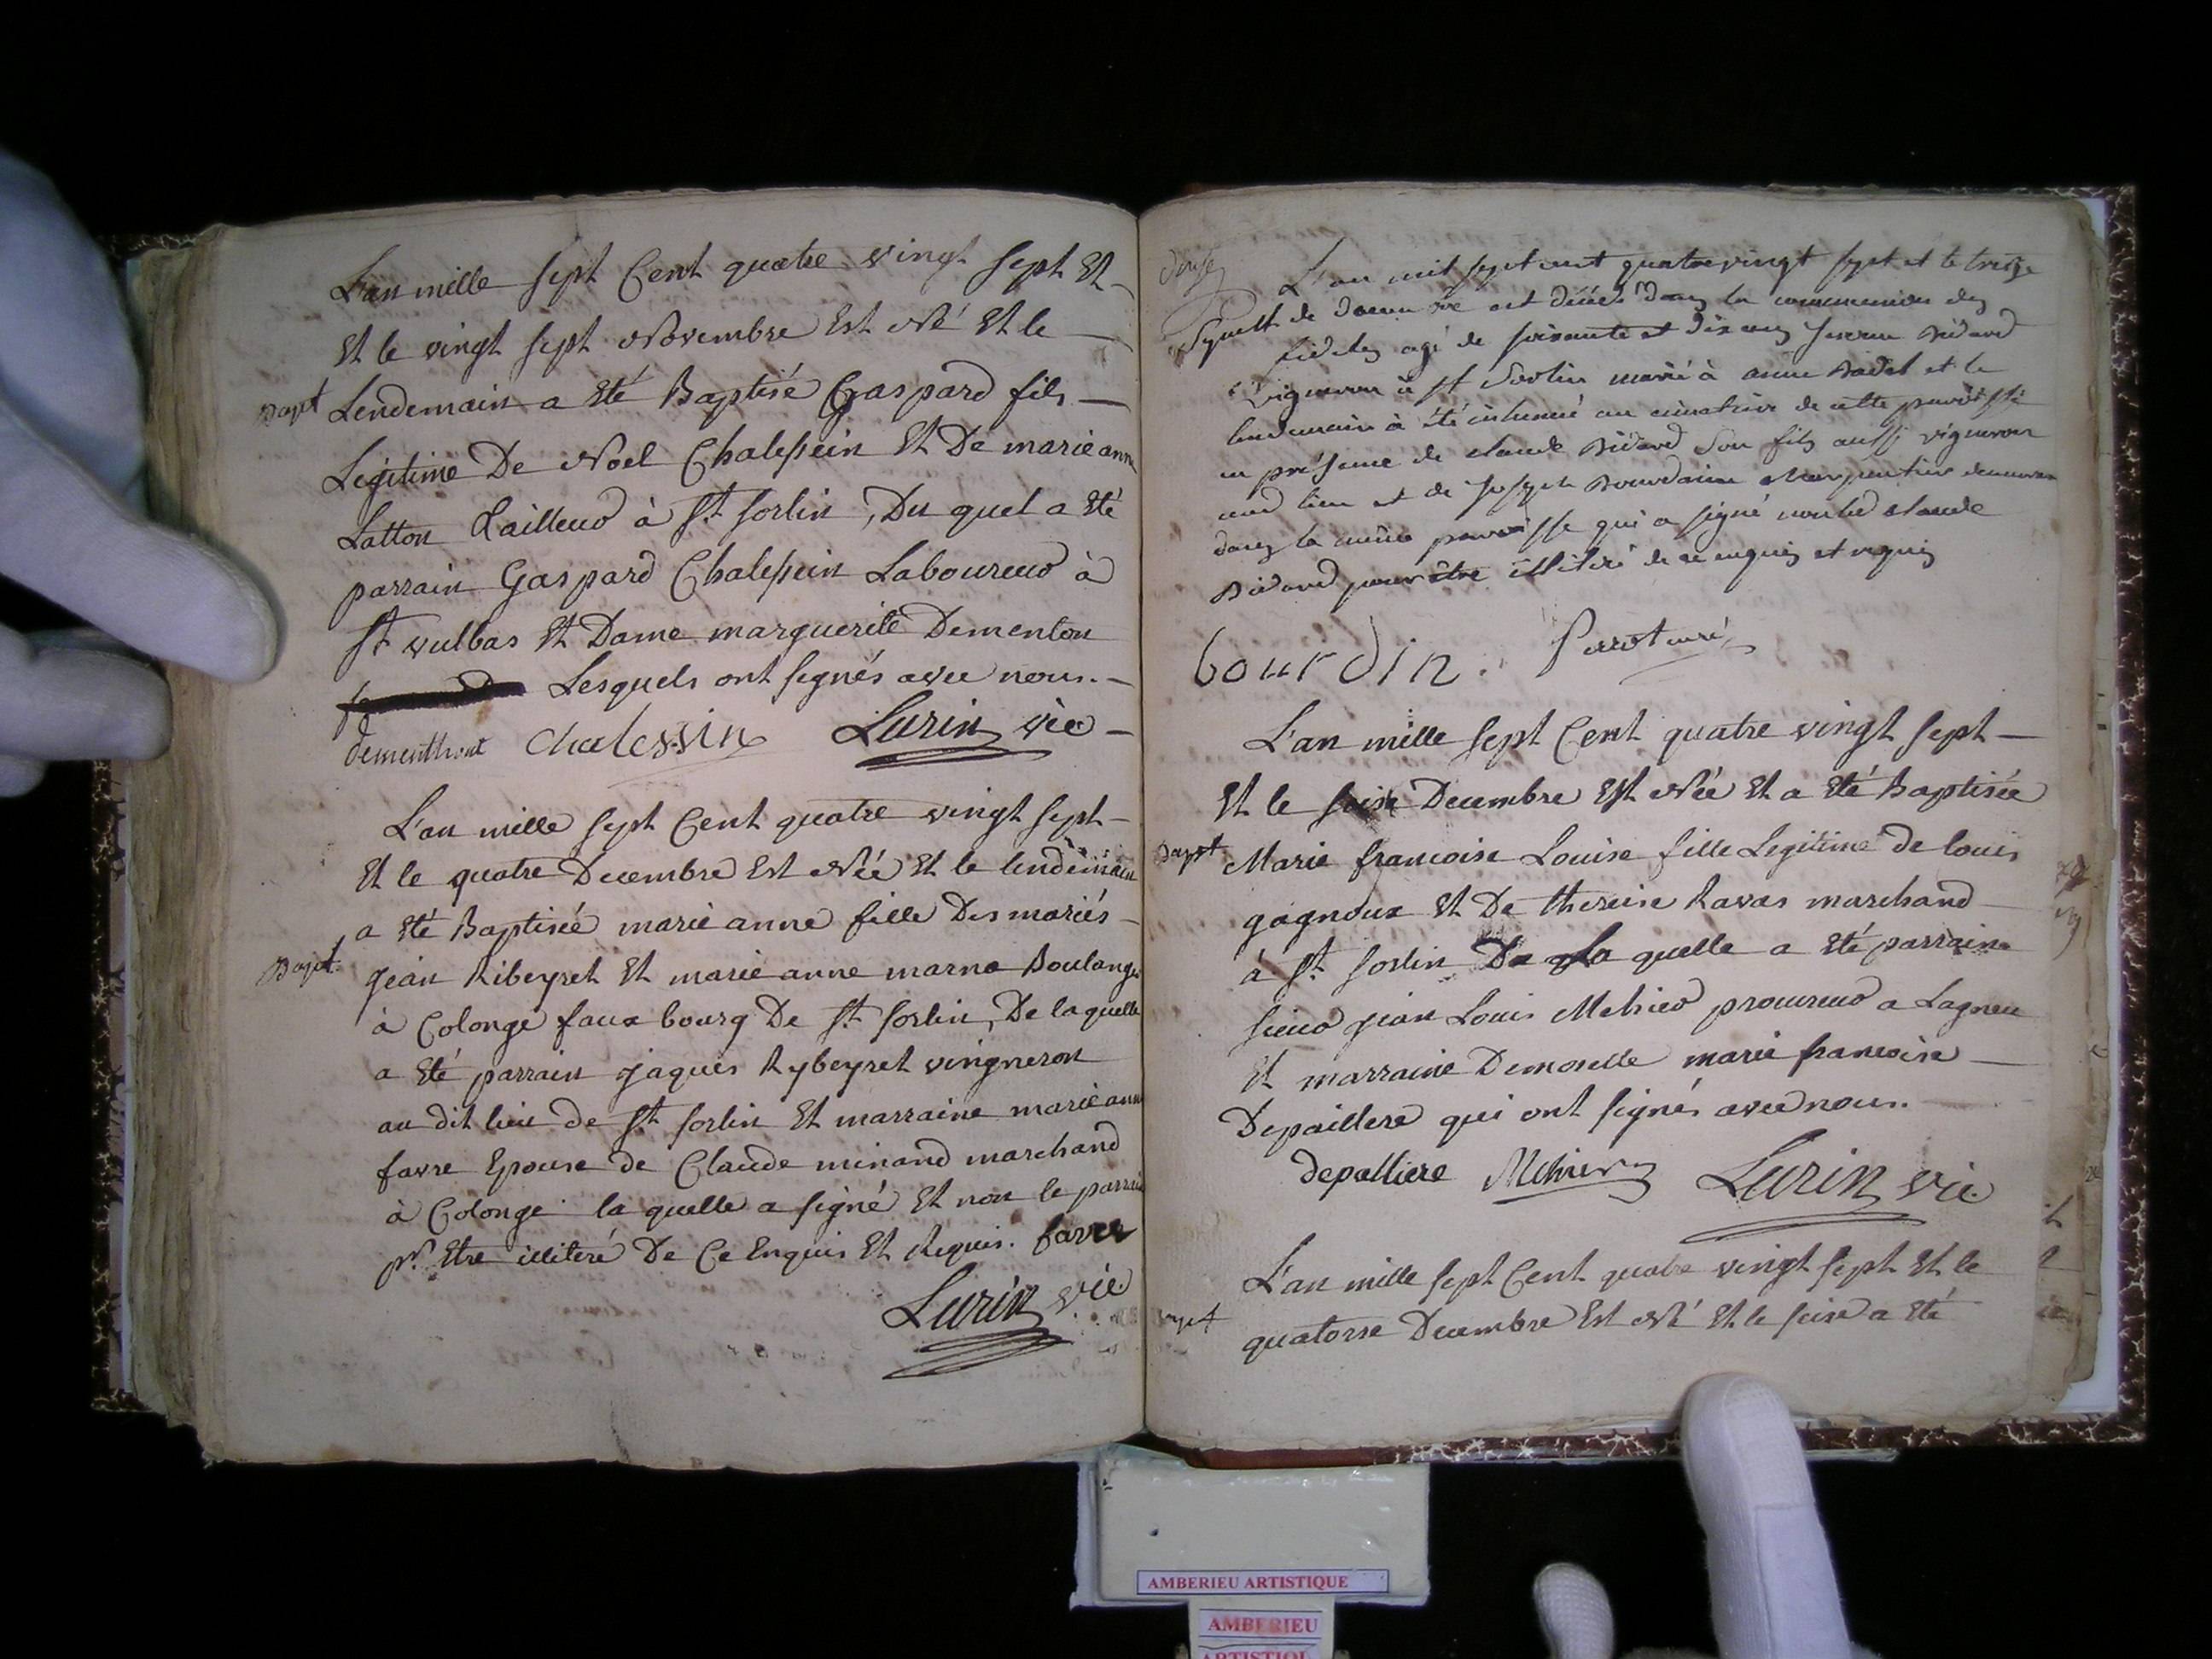 L'an mille sept Cent quatre vingt sept Et
Et le vingt sept Novembre Est Né Et le
Bapt Lendemain a Eté Baptisé Gaspard fils
Legitime De Noel Chalessein Et De marie anne
Latton Tailleur à St Sorlin, Du quel a Eté
parrain Gaspard Chalessein Laboureur à
St vulbas Et Dame marguerite Dementon
Lesquels ont signés avec nous.
dementhont Chalessin Lurin vic
L'an mille sept Cent quatre vingt sept
Et le quatre Decembre Est Née Et le lendemain
a Eté Baptisée marie anne fille Des mariés
Bapt. jean Ribeyret Et marie anne marna Boulanger
à Colonge faux bourg De St Sorlin, De laquelle
a Eté parrain jaques Rybeyret vingneron
au dit lieu de St Sorlin Et marraine marie anne
favre Epouse de Claude minand marchand
à Colonge la quelle a signé Et non le parrain
pr. Etre illiteré De Ce Enquis Et Requis. favre
Lurin vic
L'an mil sept cent quatre vingt sept et le treize
Sepult de decembre est décédé dans la communion des
fideles agé de soixante et dix ans Bidard
vigneron à St Sorlin marié à anne Badet et le
lendemain à été inhumé au cimetiere de cette paroisse
en présence de claude Bidard son fils aussi vigneron
aud lieu et de joseph Bourdain charpentier demeurant
dans la même paroisse qui a signé non led claude
Bidard pour être illiteré de ce enquis et requis
bourdin. Perrot curé
L'an mille sept Cent quatre vingt sept
Et le seise Decembre Est Née Et a Eté Baptisée
Bapst Marie francoise Louise fille Legitime de louis
gagneux Et De therese Ravas marchand
à St Sorlin De La quelle a Eté parrain
sieur jean Louis Mehier procureur a Lagneu
Et marraine Demoselle marie francoise
Depaillere qui ont signés avec nous.
depalliere Mehier Lurin vic
L'an mille sept Cent quatre vingt sept Et le
Bapt quatorse Decembre Est Né Et le seise a Eté
AMBERIEU ARTISTIQUE
AMBERIEU
ARTISTIQUE